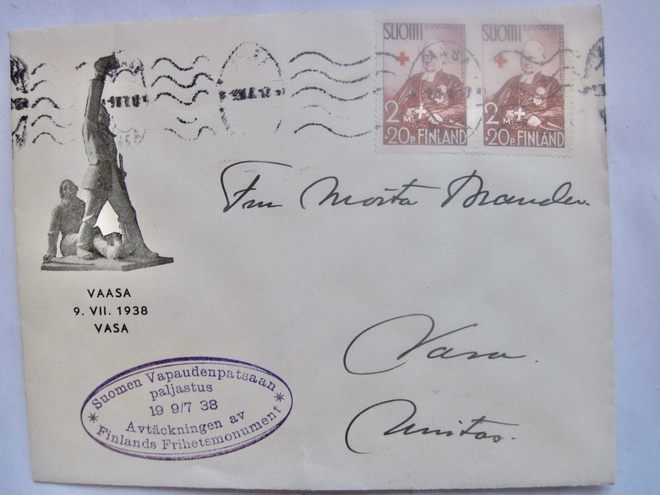 SUOMI SUOMI
2 Mk 2 Mk
+20 P. FINLAND +20 P. FINLAND
Fru Märta Branden
VAASA
9. VII. 1938
VASA
Vasa.
Unitas.
* Suomen Vapaudenpatsaan *
paljastus
19 9/7 38
Avtäckningen av
Finlands Frihetsmonument